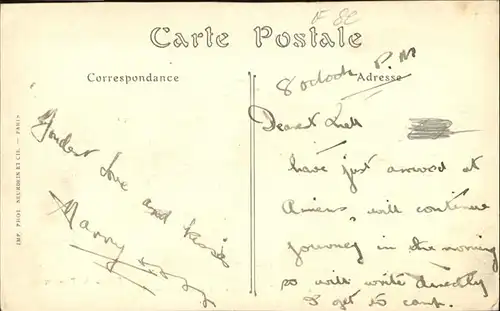 Carte Postale
Correspondance
Adresse
8 oclock P.M
Dearest
have just arrived at
Amiens, will continue
journey in the morning
so will write directly
I get to camp.
Fondest love and kisses
Harry xxxx
IMP. PHOT. NEURDEIN ET CIE. — PARIS